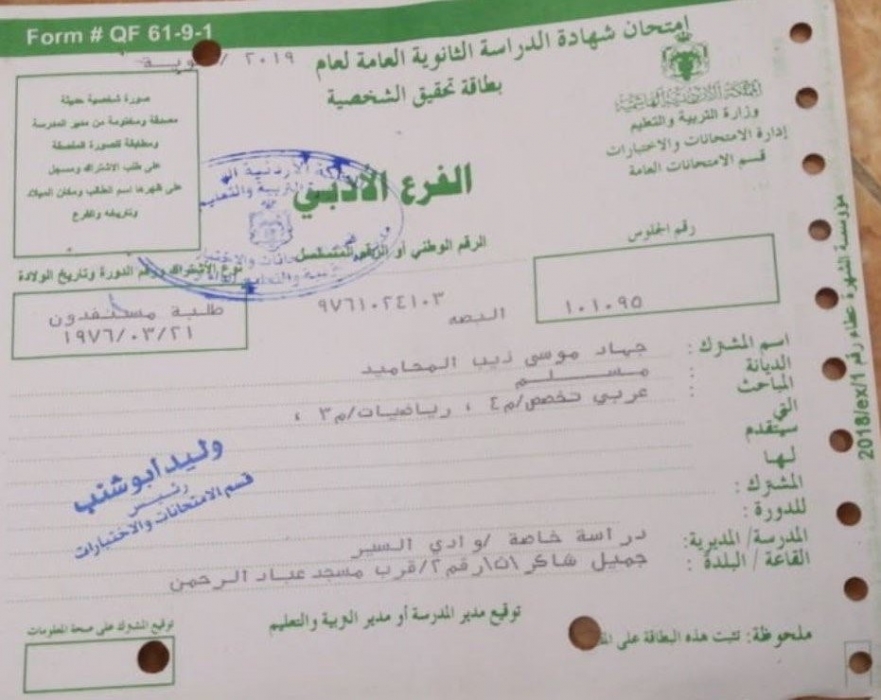 Form # QF 61-9-1
امتحان شهادة الدراسة الثانوية العامة لعام ٢٠١٩ /
بطاقة تحقيق الشخصية
المملكة الأردنية الهاشمية
وزارة التربية والتعليم
إدارة الامتحانات والاختبارات
قسم الامتحانات العامة
صورة شخصية حديثة
مصدقة ومختومة من مدير المدرسة
ومطابقة للصورة الملصقة
على طلب الاشتراك ومسجل
على ظهرها اسم الطالب ومكان الميلاد
وتاريخه والفرع
الفرع الأدبي
رقم الجلوس
١٠١٠٩٥
الرقم الوطني أو الرقم المتسلسل
٩٧٦١٠٢٤١٠٣
البصه
نوع الاشتراك ورقم الدورة وتاريخ الولادة
طلبة مستنفدون
١٩٧٦/٠٣/٢١
اسم المشترك : جهاد موسى ذيب المحاميد
الديانة : مسلم
المباحث : عربي تخصص/م٤ ، رياضيات/م٣ ،
التي
سيتقدم
لها
المشترك :
للدورة :
المدرسة/ المديرية: دراسة خاصة /وادي السير
القاعة / البلدة : جميل شاكر\ث\رقم٢/قرب مسجد عباد الرحمن
وليد أبو شنب
رئيس
قسم الامتحانات والاختبارات
توقيع المشترك على صحة المعلومات
توقيع مدير المدرسة أو مدير التربية والتعليم
ملحوظة: تثبت هذه البطاقة على
مؤسسة الشهرة عطاء رقم 2018/ex/1